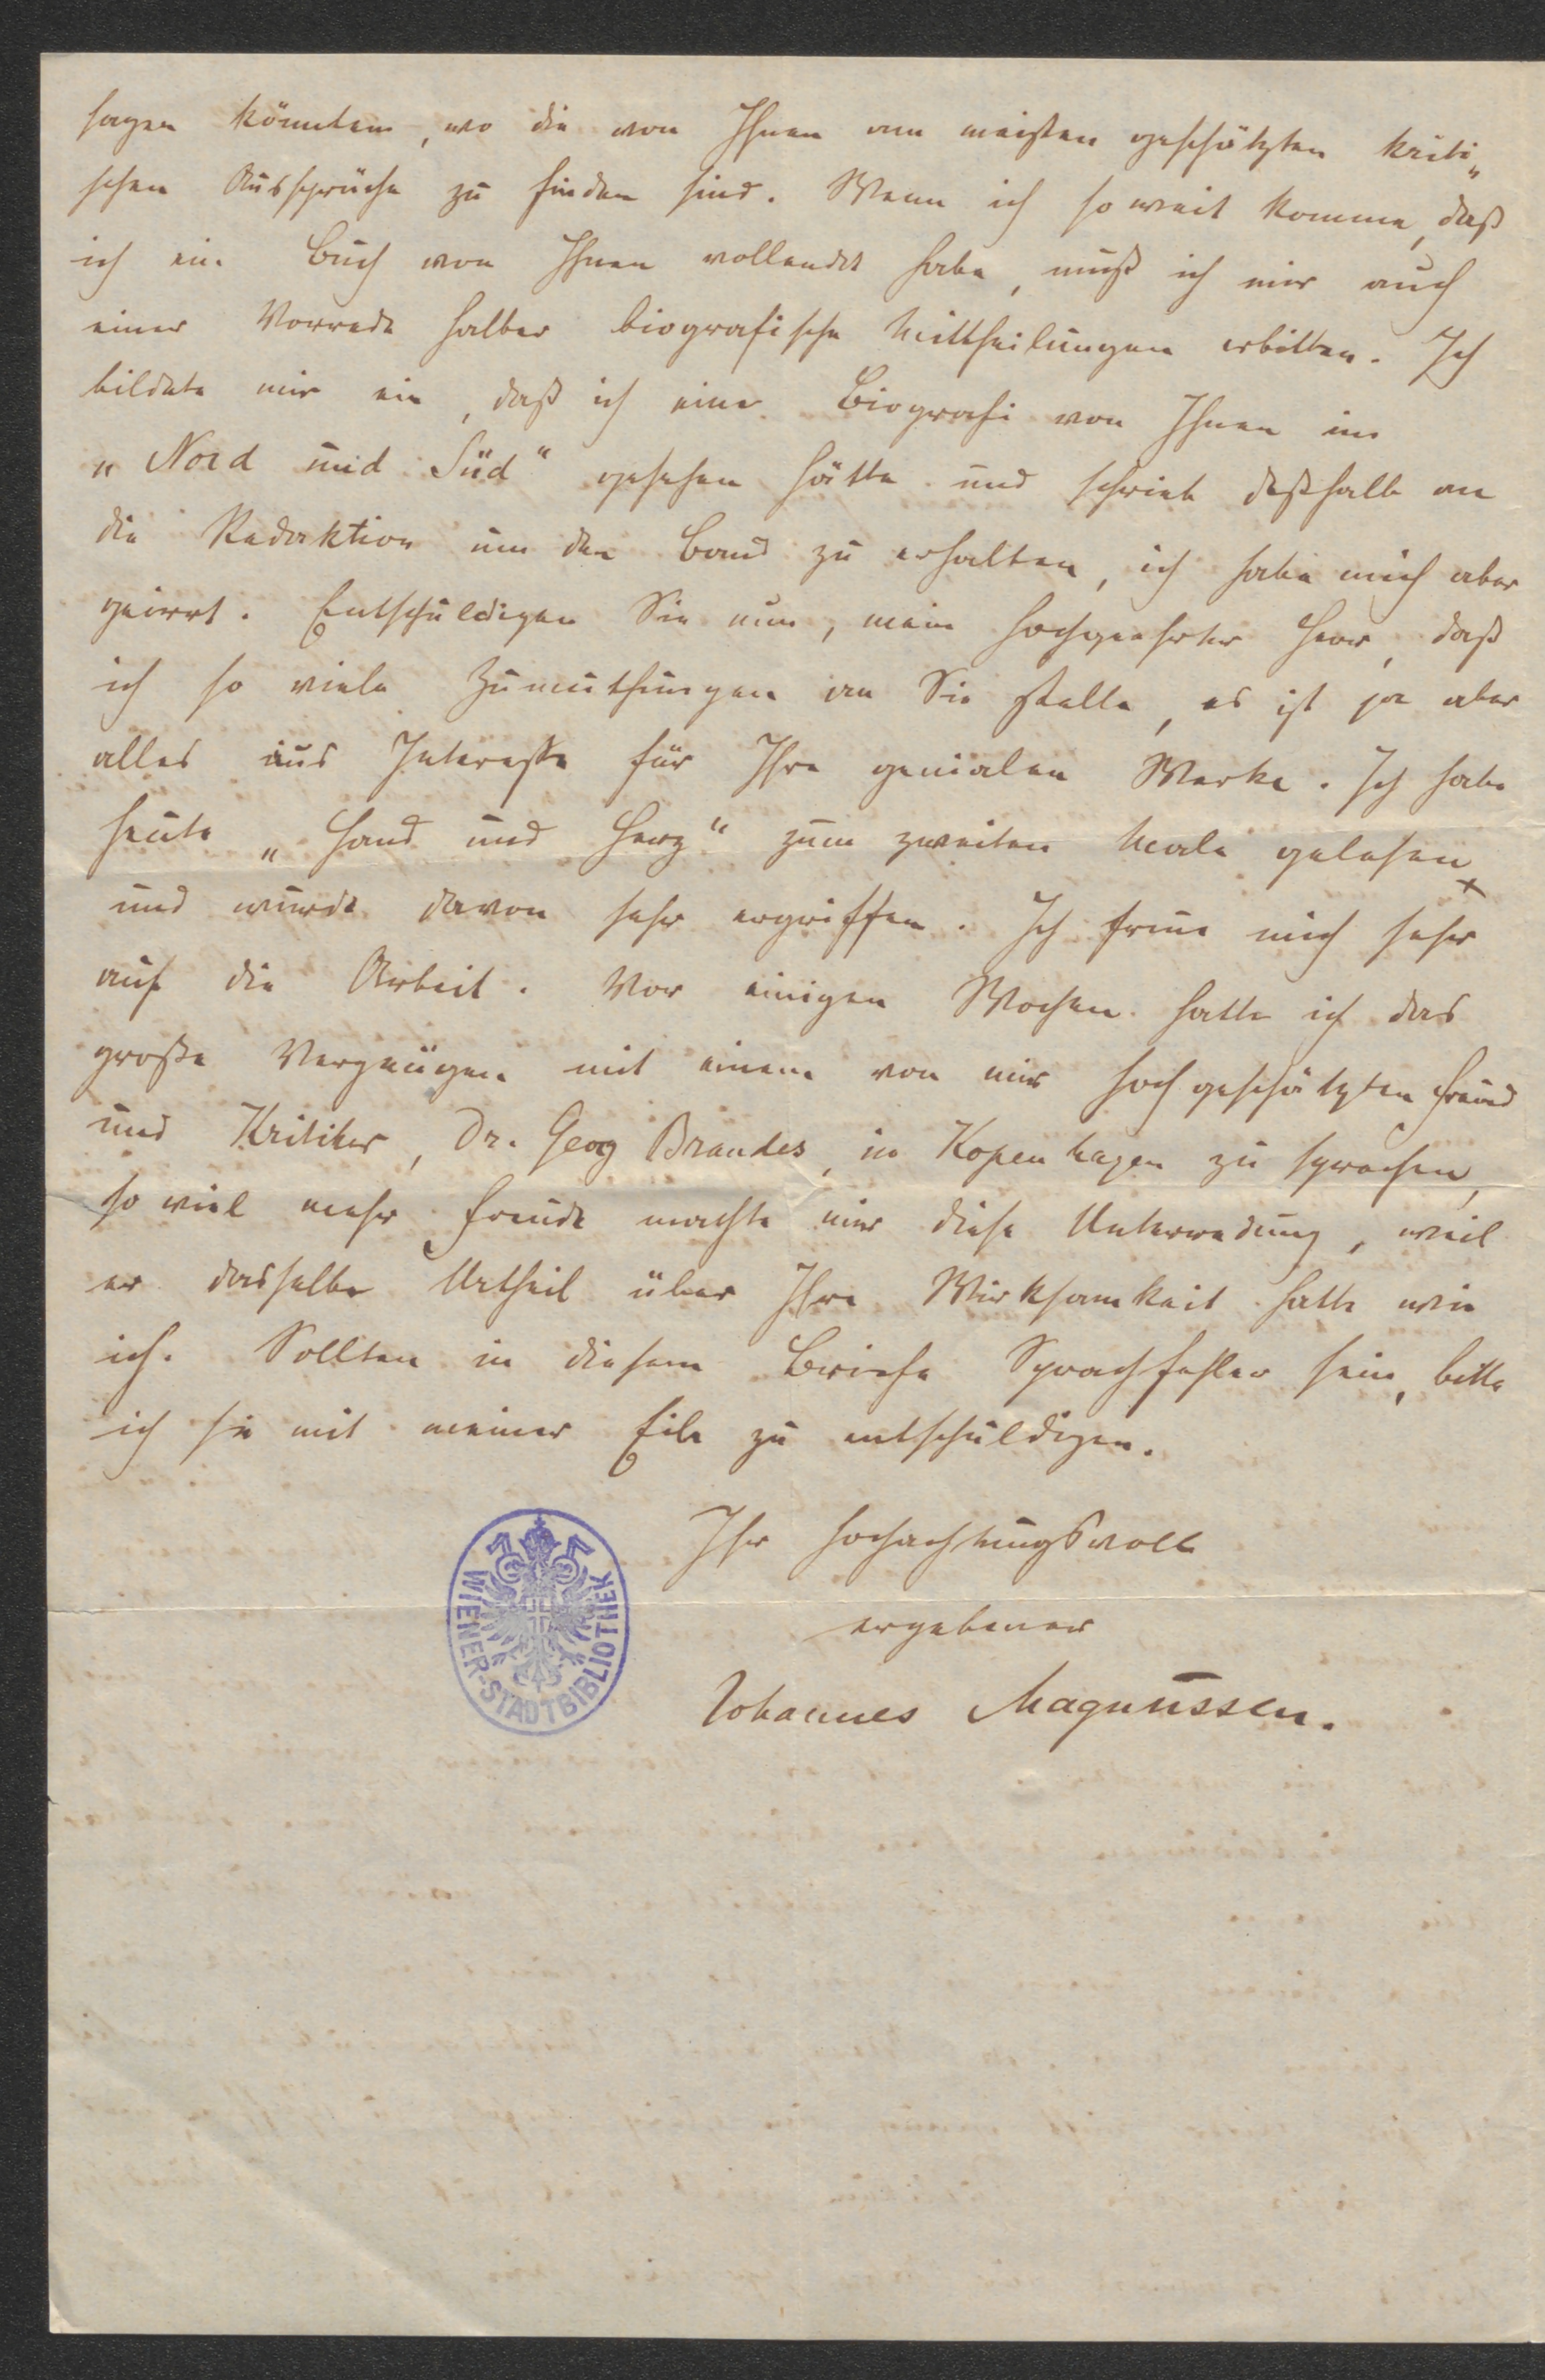 sagen könnten, wo die von Ihnen am meisten geschätzten kriti„
schen Aussprüche zu finden sind. Wenn ich so weit komme, daß
ich ein Buch von Ihnen vollendet habe, muß ich mir auch
einer Vorrede halber biografische Mittheilungen erbitten. Ich
bildete mir ein, daß ich eine Biografi von Ihnen im
„Nord und Süd“ gesehen hätte und schrieb deßhalb an
die Redaktion um den Band zu erhalten, ich habe mich aber
geirrt. Entschuldigen Sie nun, mein hochgeehrter Herr, daß
ich so viele Zumuthungen an Sie stelle, es ist ja aber
alles aus Interesse für Ihre genialen Werke. Ich habe
heute „Hand und Herz“ zum zweiten Male gelesen
und wurde davon sehr ergriffen. Ich freue mich sehr
auf die Arbeit. Vor einigen Wochen hatte ich das
große Vergnügen mit einem von mir hochgeschätzten Freund
und Kritiker, Dr. Georg Brandes, in Kopenhagen zu sprechen,
so viel mehr Freude machte mir diese Unterredung, weil
er dasselbe Urtheil über Ihre Wirksamkeit hatte wie
ich. Sollten in diesem Briefe Sprachfehler sein, bitte
ich sie mit meiner Eile zu entschuldigen.
Ihr hochachtungsvoll
ergebener
Johannes Magnussen.
WIENER-STADTBIBLIOTHEK